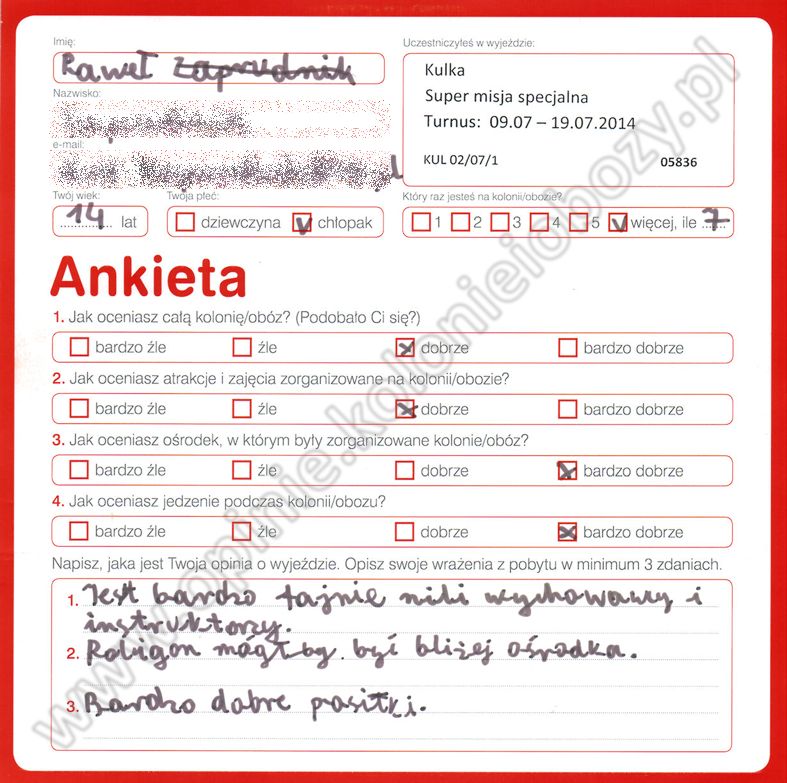 Imię:
Paweł Zaprudnik
Uczestniczyłeś w wyjeździe:
Kulka
Super misja specjalna
Turnus: 09.07 – 19.07.2014
KUL 02/07/1 05836
Nazwisko:
e-mail:
Twój wiek:
14 lat
Twoja płeć:
dziewczyna v chłopak
Który raz jesteś na kolonii/obozie?
1 2 3 4 5 v więcej, ile 7
Ankieta
1. Jak oceniasz całą kolonię/obóz? (Podobało Ci się?)
bardzo źle źle x dobrze bardzo dobrze
2. Jak oceniasz atrakcje i zajęcia zorganizowane na kolonii/obozie?
bardzo źle źle x dobrze bardzo dobrze
3. Jak oceniasz ośrodek, w którym były zorganizowane kolonie/obóz?
bardzo źle źle dobrze x bardzo dobrze
4. Jak oceniasz jedzenie podczas kolonii/obozu?
bardzo źle źle dobrze x bardzo dobrze
Napisz, jaka jest Twoja opinia o wyjeździe. Opisz swoje wrażenia z pobytu w minimum 3 zdaniach.
1. Jest bardzo fajnie mili wychowawcy i
instruktorzy.
2. Poligon mógłby być bliżej ośrodka.
3. Bardzo dobre posiłki.
www.opinie.kolonieiobozy.pl